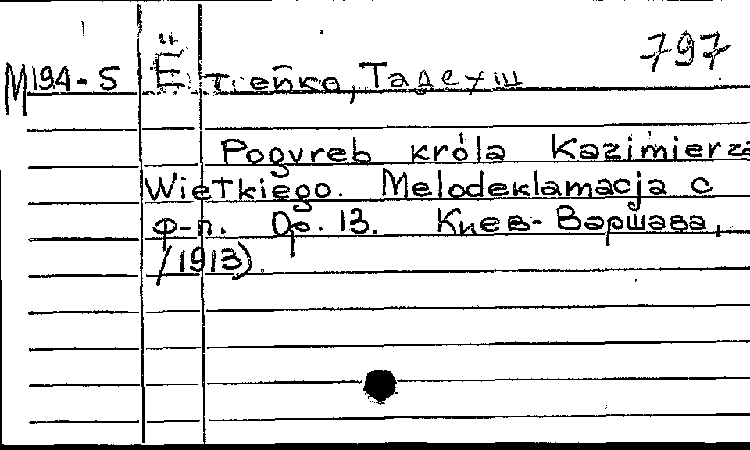 797
М194-5 Ётейко, Тадеуш
Pogvreb króla Kazimierza
Wietkiego. Melodeklamacja с
ф-п. Op. 13. Киев-Варшава,
/1913)